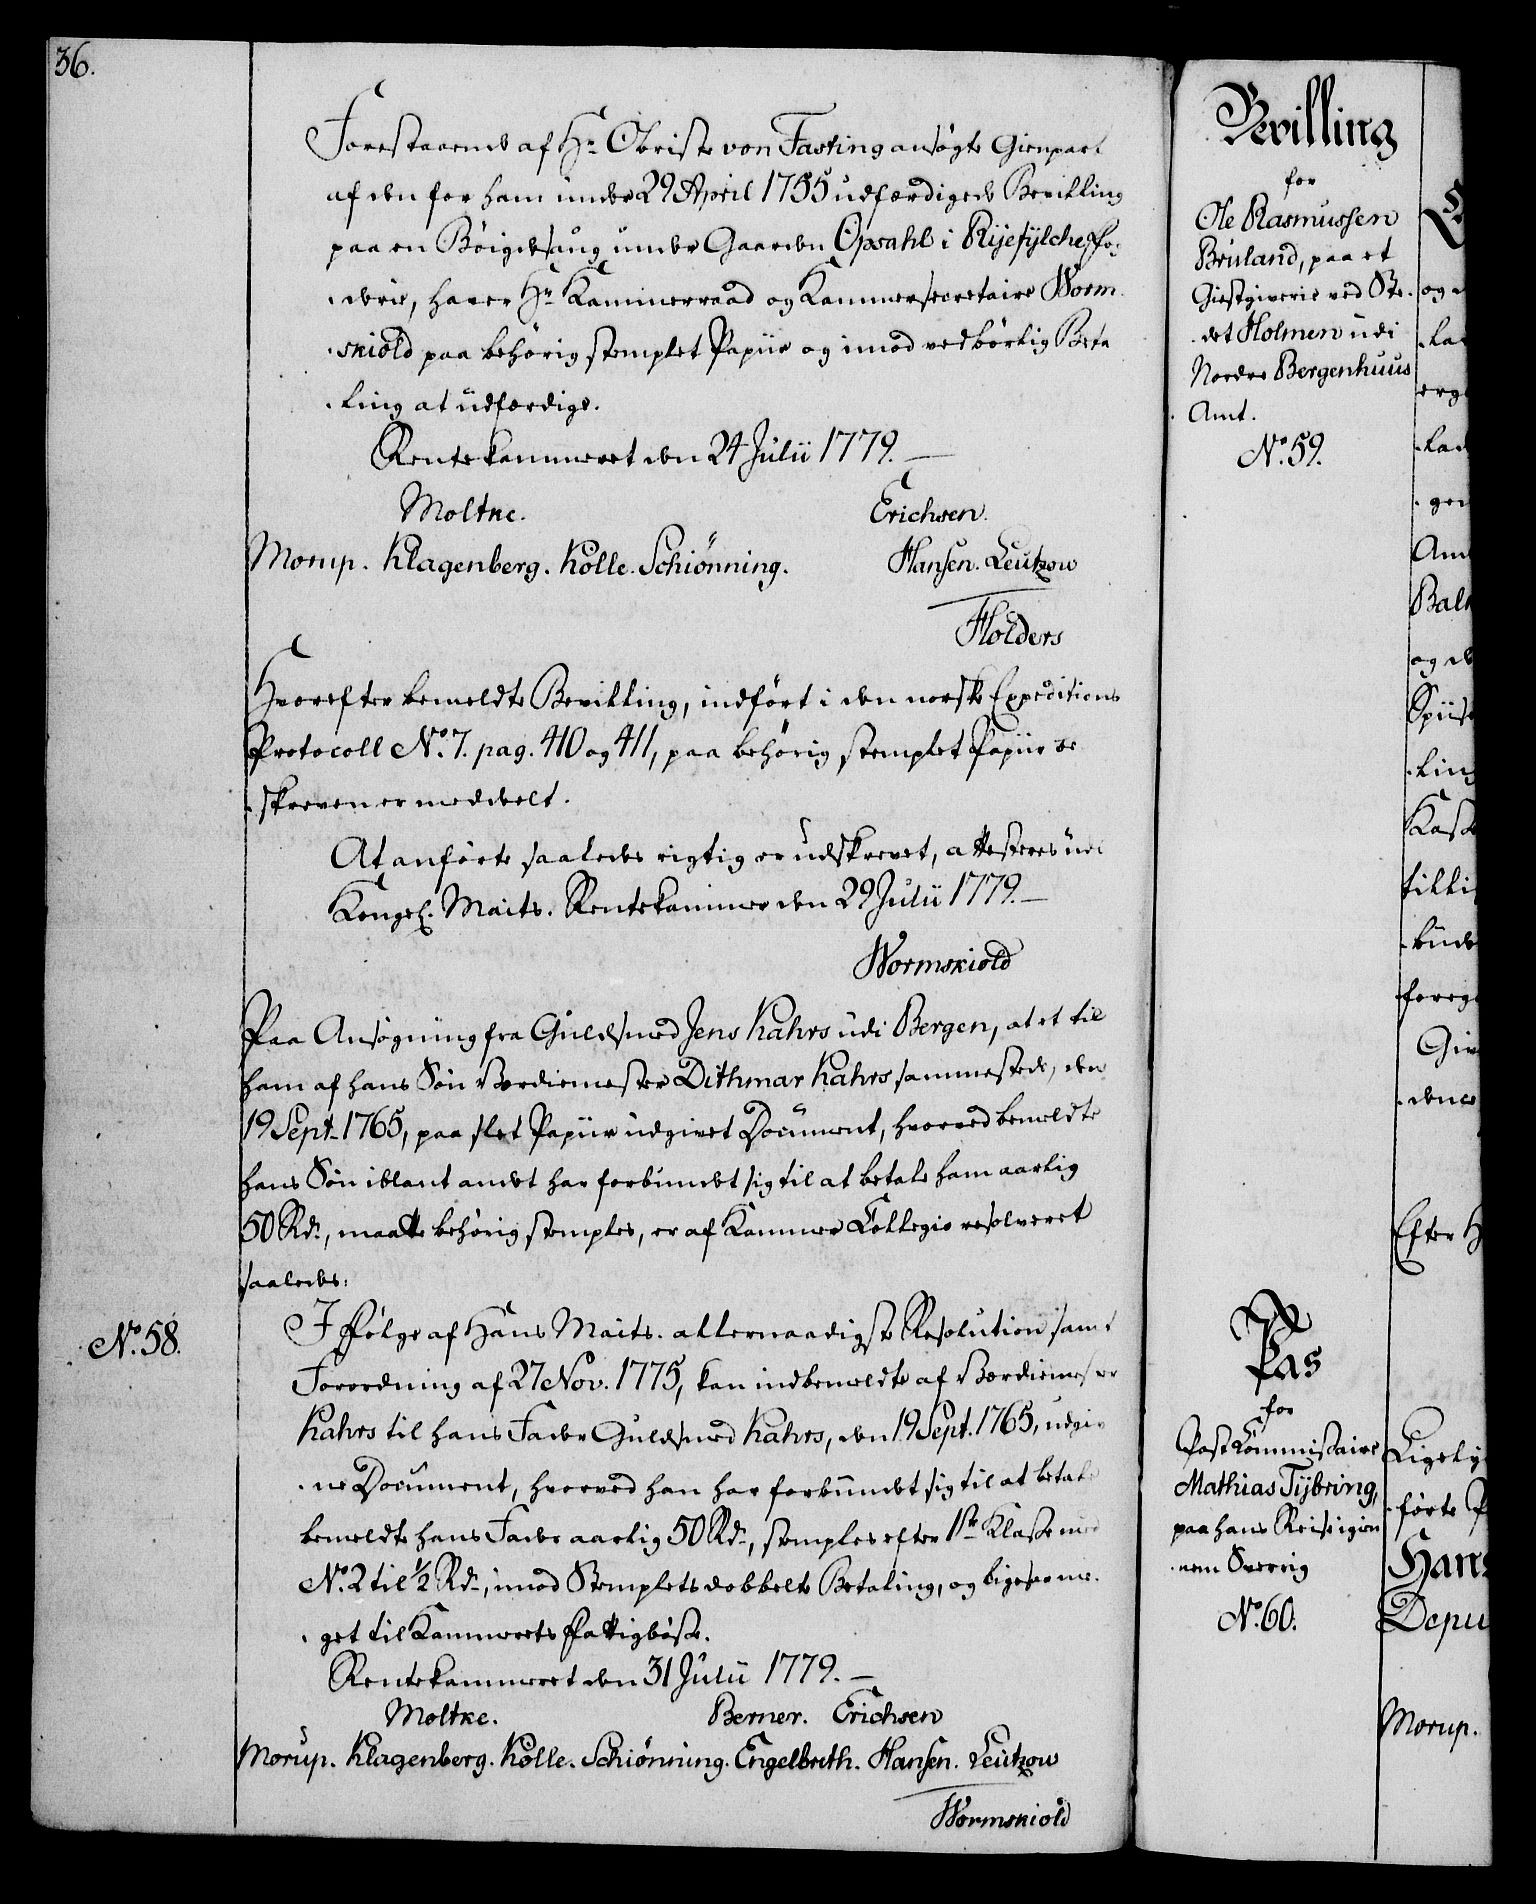 36.
Forestaaende af Hr Obriste von Fasting ansøgte Gienpart
af den for ham under 29 April 1755 udfærdigede Bevilling
paa en Böigdesaug under Gaarden Opsahl i Ryefylche Fo-
-derie, haver Hr Kammerraad og Kammersecretaire Worm-
-skiold paa behörig stemplet Papiir og imod vedbörlig Beta
-ling at udfærdige.
Rentekammeret den 24 Julii 1779.
Moltke. Erichsen.
Morup. Klagenberg. Kolle. Schiönning. Hansen. Leutzow
Holders
Hvorefter bemeldte Bevilling, indfört i den norske Expeditions
Protocoll No. 7. pag. 410 og 411, paa behörig stemplet Papiir be
-skreven er meddelt.
At anförte saaledes rigtig er udskrevet, attesteres udi
Kongel. Maits. Rentekammer den 29 Julii 1779.
Wormskiold
Paa Ansögning fra Guldsmed Jens Kahrs udi Bergen, at et til
ham af hans Sön Værdiemester Dithmar Kahrs sammesteds, den
19 Sept. 1765, paa slet Papiir udgivet Document, hvorved bemeldte
hans Sön iblant andet har forbundet sig til at betale ham aarlig
50 Rd., maatte behörig stemples, er af Kammer Collegio resolveret
saaledes:
No. 58.
I Fölge af Hans Maits. allernaadigste Resolution samt
Forordning af 27 Nov. 1775, kan indbemeldte af Værdiemester
Kahrs til hans Fader Guldsmed Kahrs, den 19 Sept. 1765, udgiv
-ne Document, hvorved han har forbundet sig til at betale
bemeldte hans Fader aarlig 50 Rd., stemples efter 1ste Klasse med
No. 2 til ½ Rd., imod Stemplets dobbelte Betaling, og ligesaame-
-get til Kammerets Fattigbösse.
Rentekammeret den 31 Julii 1779.
Moltke. Berner. Erichsen
Morup. Klagenberg. Kolle. Schiönning. Engelbreth. Hansen. Leutzow
Wormskiold
Bevilling
for
Ole Rasmussen
Bruland, paa et
Giestgiverie ved Ste-
-det Holmen udi
Nordre Bergenhuus
Amt.
No. 59.
Pas
for
Post Commissaire
Mathias Tybring,
paa hans Reise igien
-nem Sverrig
No. 60.
og
Am
Balt
Spiise
-ling
Kasse
tilli
forege
Efter H
Ligely
förte P
Hans
Depu
Morup.